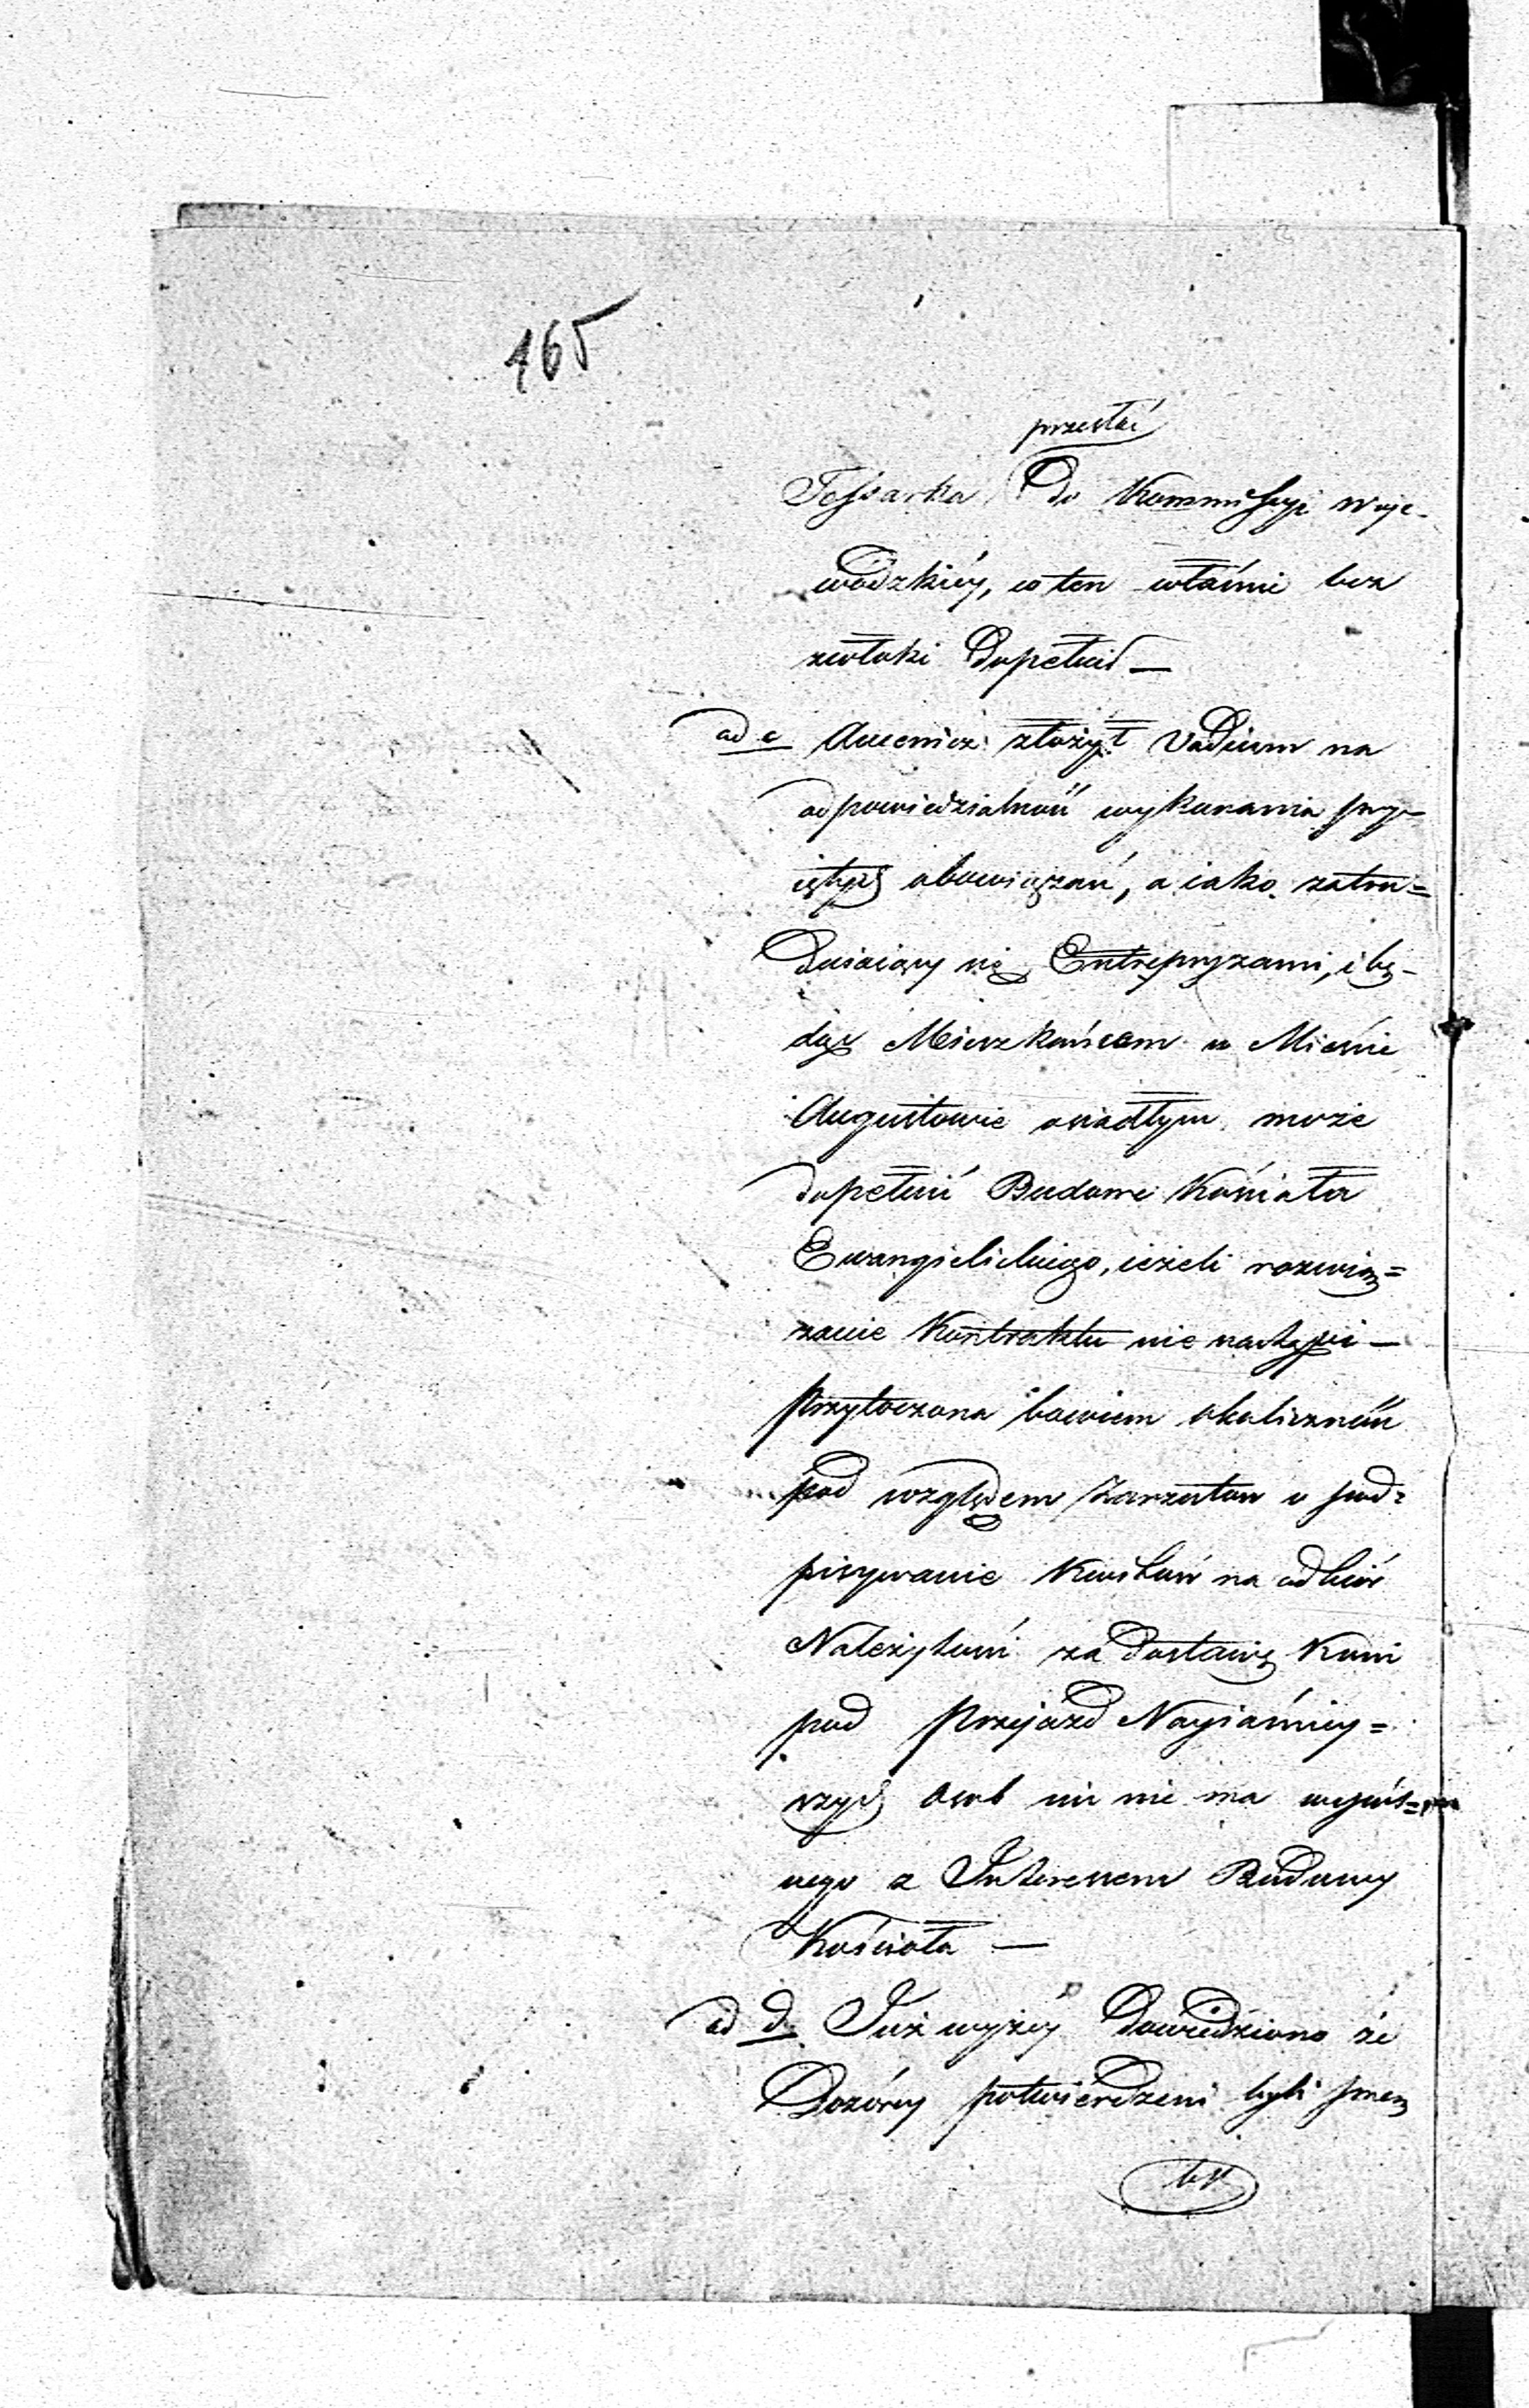 465
przesłać
Tessarka do Kommissyi woje-
wódzkiéy, co ten właśnie bez
zwłoki dopełnił —
ad c złożył Vadium na
odpowiedzialność wykonania przy-
iętych obowiązań, a iako zatru=
dniaiący się Entrepryzami, i bę-
dąc Mieszkańcem w Mieście
Augustowie osiadłym może
dopełnić Budowę Kościoła
Ewangielickiego, ieżeli rozwią=
zanie Kontraktu nie nastąpi —
Przytoczona bowiem okoliczność
pod względem Zarzutów o pod=
pisywanie Kwitów na odbiór
Należytości za dostawę Koni
pod Przejazd Nayiaśniey=
szych Osób nic nie ma wspól=
nego z Interessem Budowy
Kościoła —
ad d. Już wyżéy dowiedziono że
Dozórcy potwierdzeni byli przez